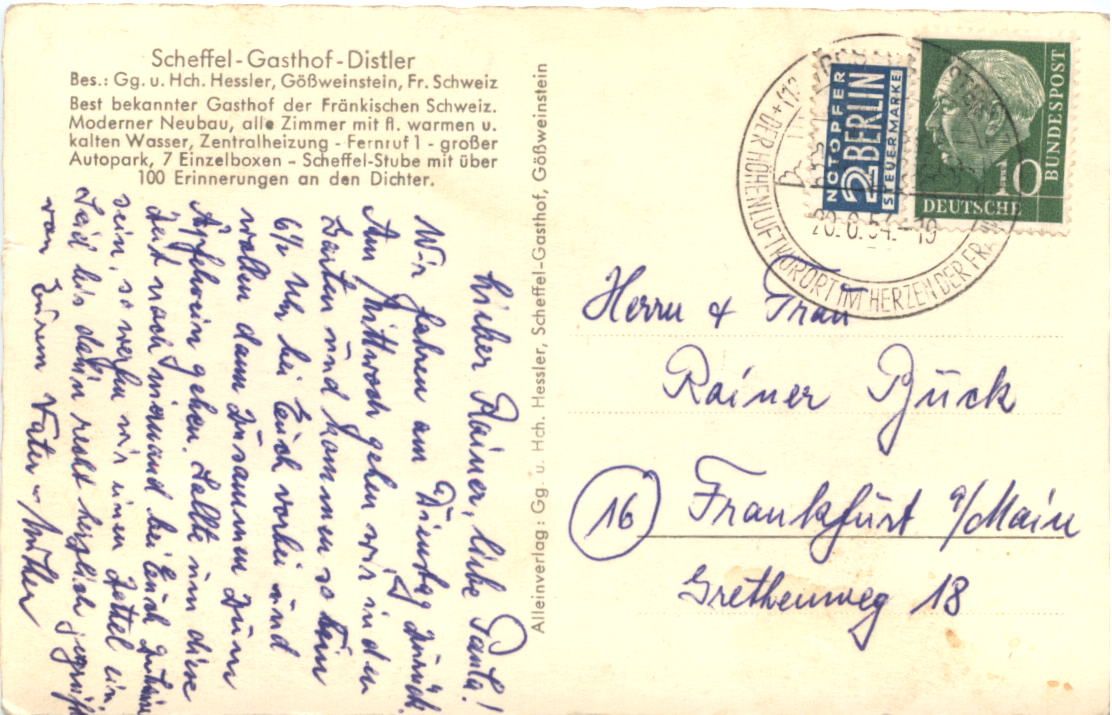 Scheffel-Gasthof-Distler
Bes.: Gg. u. Hch. Hessler, Gößweinstein, Fr. Schweiz
Best bekannter Gasthof der Fränkischen Schweiz.
Moderner Neubau, alle Zimmer mit fl. warmen u.
kalten Wasser, Zentralheizung - Fernruf 1 - großer
Autopark, 7 Einzelboxen - Scheffel-Stube mit über
100 Erinnerungen an den Dichter.
Lieber Rainer, liebe Paula!
Wir fahren am Dienstag zurück.
Am Mittwoch gehen wir in den
Garten und kommen so um
6½ Uhr bei Euch vorbei und
wollen dann zusammen zum
Äpfelwein gehen. Sollte um diese
Zeit noch niemand bei Euch zuhause
sein, so werfen wir einen Zettel ein.
Seid bis dahin recht herzlich gegrüßt
von Eurem Vater - Mutter
Alleinverlag: Gg. u. Hch. Hessler, Scheffel-Gasthof, Gößweinstein
NOTOPFER
2 BERLIN
STEUERMARKE
10
DEUTSCHE
BUNDESPOST
20.6.54.-19
DER HÖHENLUFTKURORT IM HERZEN DER FRÄ
Herrn & Frau
Rainer Bück
16 Frankfurt a/Main
Grethenweg 18